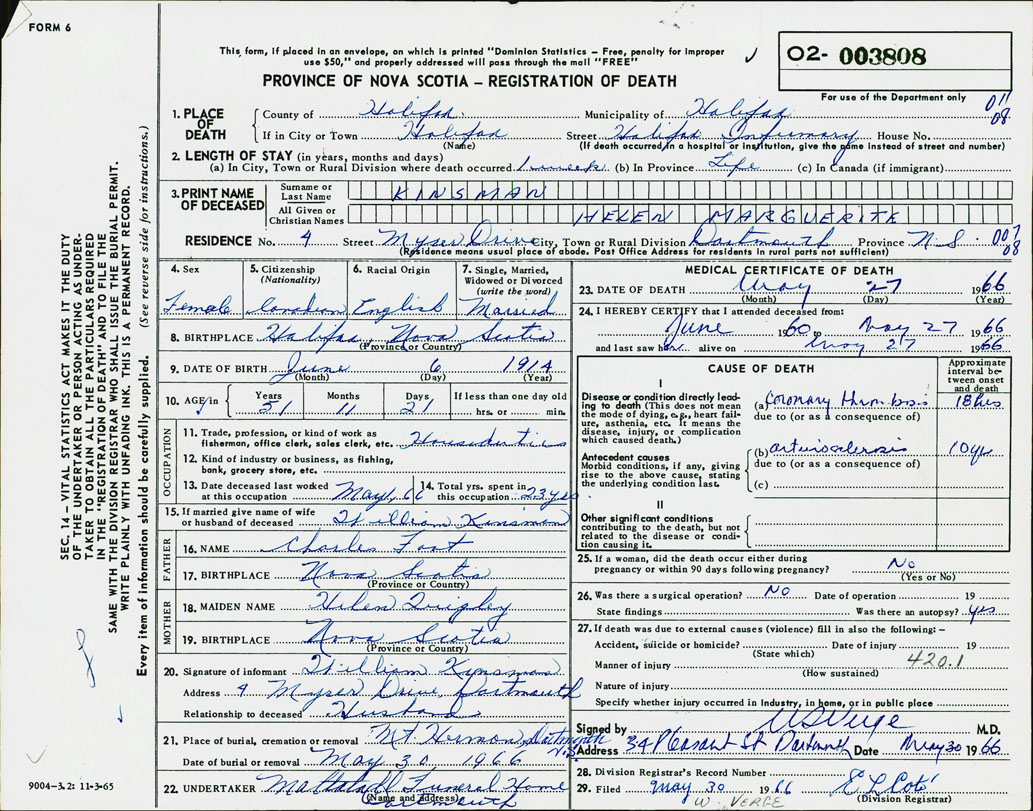 FORM 6
This form, if placed in an envelope, on which is printed "Dominion Statistics – Free, penalty for improper
use $50," and properly addressed will pass through the mail "FREE"
O2- 003808
PROVINCE OF NOVA SCOTIA – REGISTRATION OF DEATH
For use of the Department only
011
08
1. PLACE OF DEATH
County of Halifax. Municipality of Halifax
If in City or Town Halifax Street Halifax Infirmary House No.
(Name) (If death occurred in a hospital or institution, give the name instead of street and number)
2. LENGTH OF STAY (in years, months and days)
(a) In City, Town or Rural Division where death occurred 1 week (b) In Province Life (c) In Canada (if immigrant)
3. PRINT NAME OF DECEASED
Surname or Last Name KINSMAN
All Given or Christian Names HELEN MARGUERITE
RESIDENCE No. 4 Street Myser Drive City, Town or Rural Division Dartmouth Province N.S. 007
08
(Residence means usual place of abode. Post Office Address for residents in rural parts not sufficient)
4. Sex Female
5. Citizenship (Nationality) Canadian
6. Racial Origin English
7. Single, Married, Widowed or Divorced (write the word) Married
8. BIRTHPLACE Halifax, Nova Scotia
(Province or Country)
9. DATE OF BIRTH June 6 1914
(Month) (Day) (Year)
10. AGE in Years 51 Months 11 Days 21 If less than one day old
hrs. or min.
OCCUPATION
11. Trade, profession, or kind of work as
fisherman, office clerk, sales clerk, etc. Householduties
12. Kind of industry or business, as fishing,
bank, grocery store, etc.
13. Date deceased last worked
at this occupation May, 66
14. Total yrs. spent in
this occupation 23 yrs
15. If married give name of wife
or husband of deceased William Kinsman
FATHER
16. NAME Charles Foot
17. BIRTHPLACE Nova Scotia
(Province or Country)
MOTHER
18. MAIDEN NAME Helen Quigley
19. BIRTHPLACE Nova Scotia
(Province or Country)
20. Signature of informant William Kinsman
Address 4 Myser Drive, Dartmouth
Relationship to deceased Husband
21. Place of burial, cremation or removal Mt. Hermon, Dartmouth N.S.
Date of burial or removal May 30, 1966
22. UNDERTAKER Mattatall Funeral Home
(Name and address) Dartmouth
MEDICAL CERTIFICATE OF DEATH
23. DATE OF DEATH May 27 1966
(Month) (Day) (Year)
24. I HEREBY CERTIFY that I attended deceased from:
June 1960 to May 27 1966
and last saw her alive on May 27 1966
CAUSE OF DEATH
Approximate interval between onset and death
I
Disease or condition directly leading to death (This does not mean the mode of dying, e.g., heart failure, asthenia, etc. It means the disease, injury, or complication which caused death.)
(a) Coronary thrombosis 18 hrs
due to (or as a consequence of)
Antecedent causes
Morbid conditions, if any, giving rise to the above cause, stating the underlying condition last.
(b) arteriosclerosis 10 yr
due to (or as a consequence of)
(c)
II
Other significant conditions
contributing to the death, but not related to the disease or condition causing it.
25. If a woman, did the death occur either during
pregnancy or within 90 days following pregnancy? No
(Yes or No)
26. Was there a surgical operation? No Date of operation 19
State findings Was there an autopsy? yes
27. If death was due to external causes (violence) fill in also the following: –
Accident, suicide or homicide? Date of injury 19
(State which)
420.1
Manner of injury
(How sustained)
Nature of injury
Specify whether injury occurred in Industry, in home, or in public place
Signed by W S Verge M.D.
Address 34 Pleasant St Dartmouth Date May 30 1966
28. Division Registrar's Record Number
29. Filed May 30 1966
(Division Registrar)
W. VERGE
SEC. 14 – VITAL STATISTICS ACT MAKES IT THE DUTY
OF THE UNDERTAKER OR PERSON ACTING AS UNDER-
TAKER TO OBTAIN ALL THE PARTICULARS REQUIRED
IN THE "REGISTRATION OF DEATH" AND TO FILE THE
SAME WITH THE DIVISION REGISTRAR WHO SHALL ISSUE THE BURIAL PERMIT.
WRITE PLAINLY WITH UNFADING INK. THIS IS A PERMANENT RECORD.
Every item of information should be carefully supplied. (See reverse side for instructions.)
9004-3.2: 11-3-65